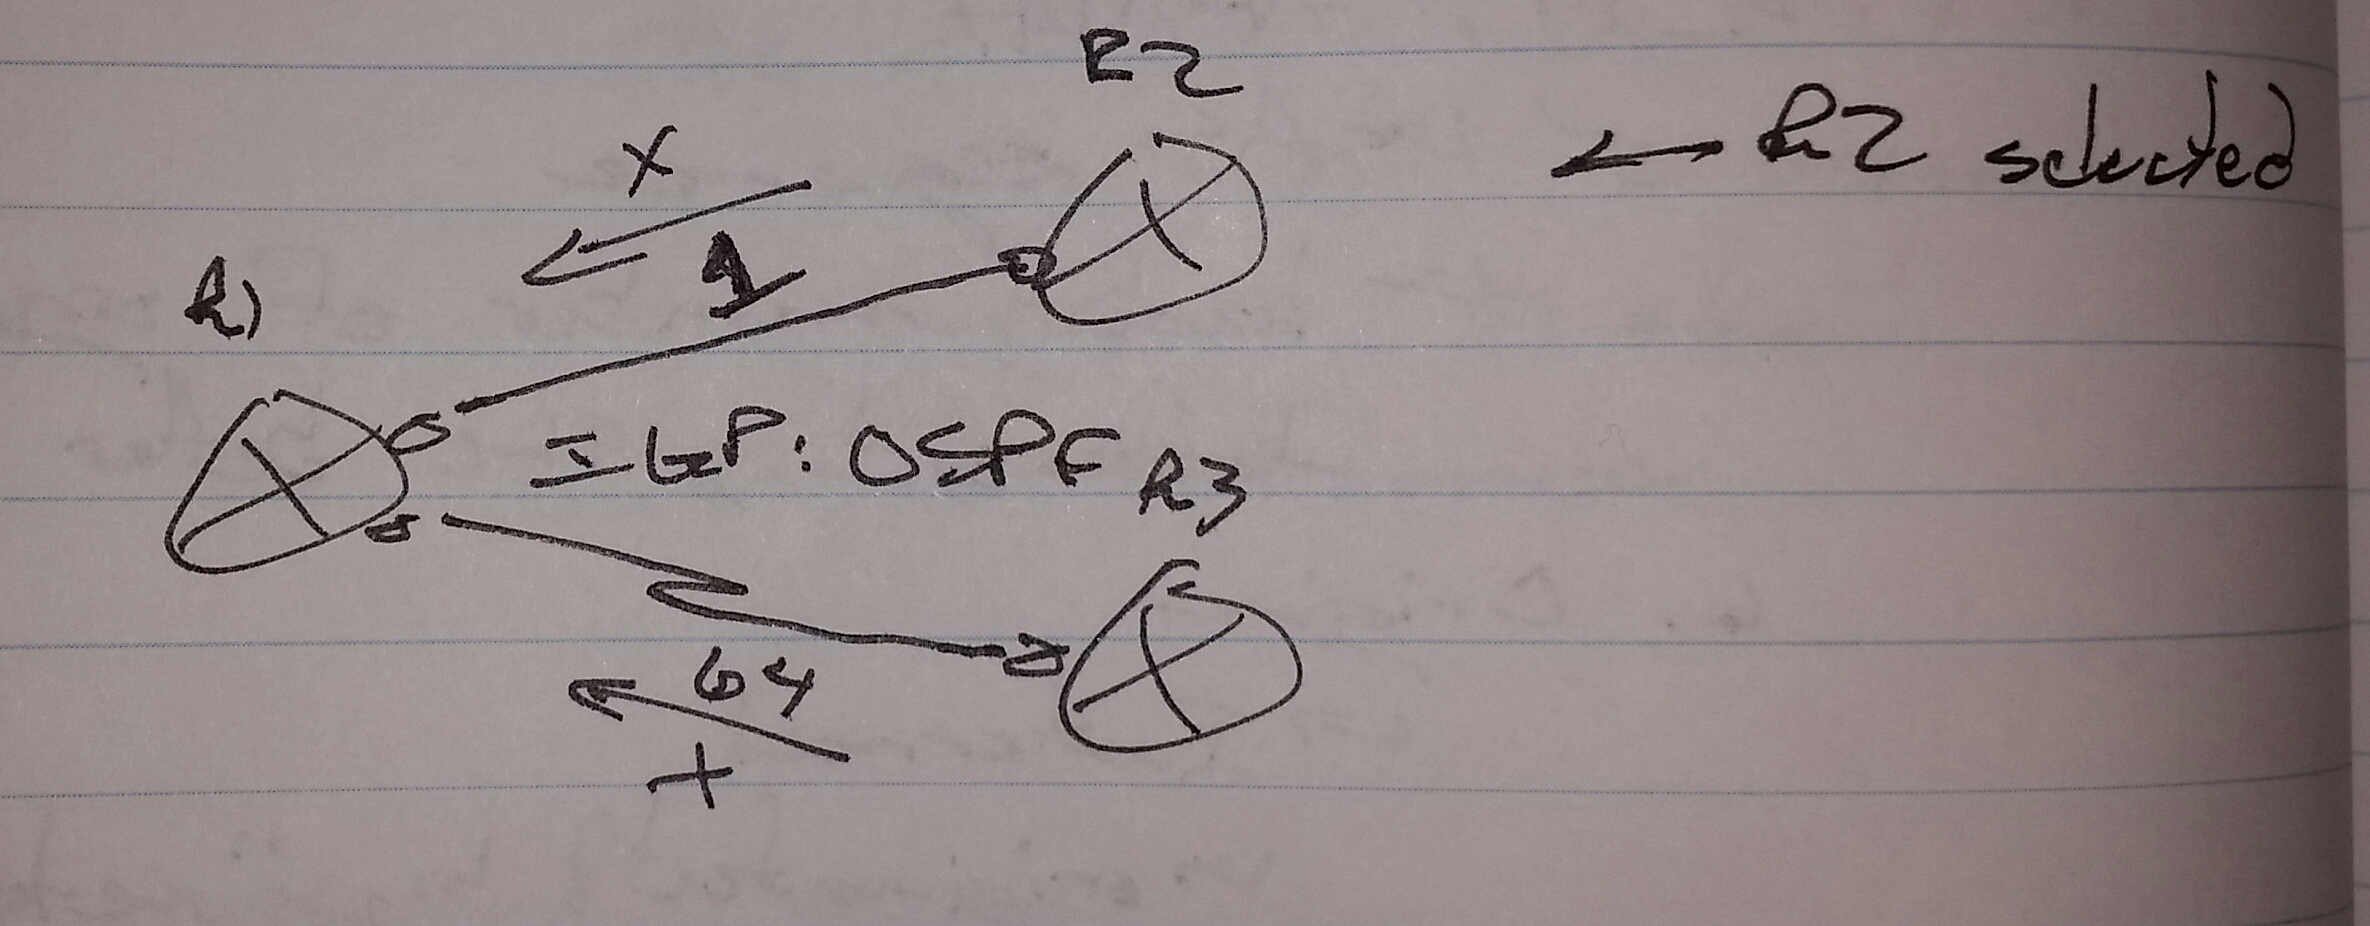 R2
← R2 selected
X
1
R1
IGP: OSPF
R3
64
X